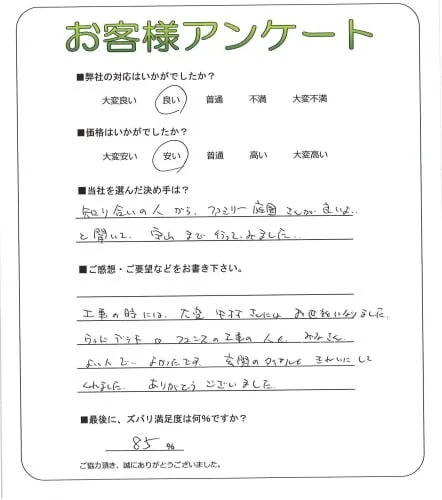 お客様アンケート
■弊社の対応はいかがでしたか?
大変良い 良い 普通 不満 大変不満
■価格はいかがでしたか?
大変安い 安い 普通 高い 大変高い
■当社を選んだ決め手は?
知り合いの人から、ファミリー庭園さんが良いよ、
と聞いて、守山まで行ってみました。
■ご感想・ご要望などをお書き下さい。
工事の時には、大変 中村さんにはお世話になりました。
ウッドデッキやフェンスの工事の人も、みなさん、
よい人で、よかったです。玄関のタイルもきれいにして
くれました。ありがとうございました。
■最後に、ズバリ満足度は何%ですか?
85 %
ご協力頂き、誠にありがとうございました。